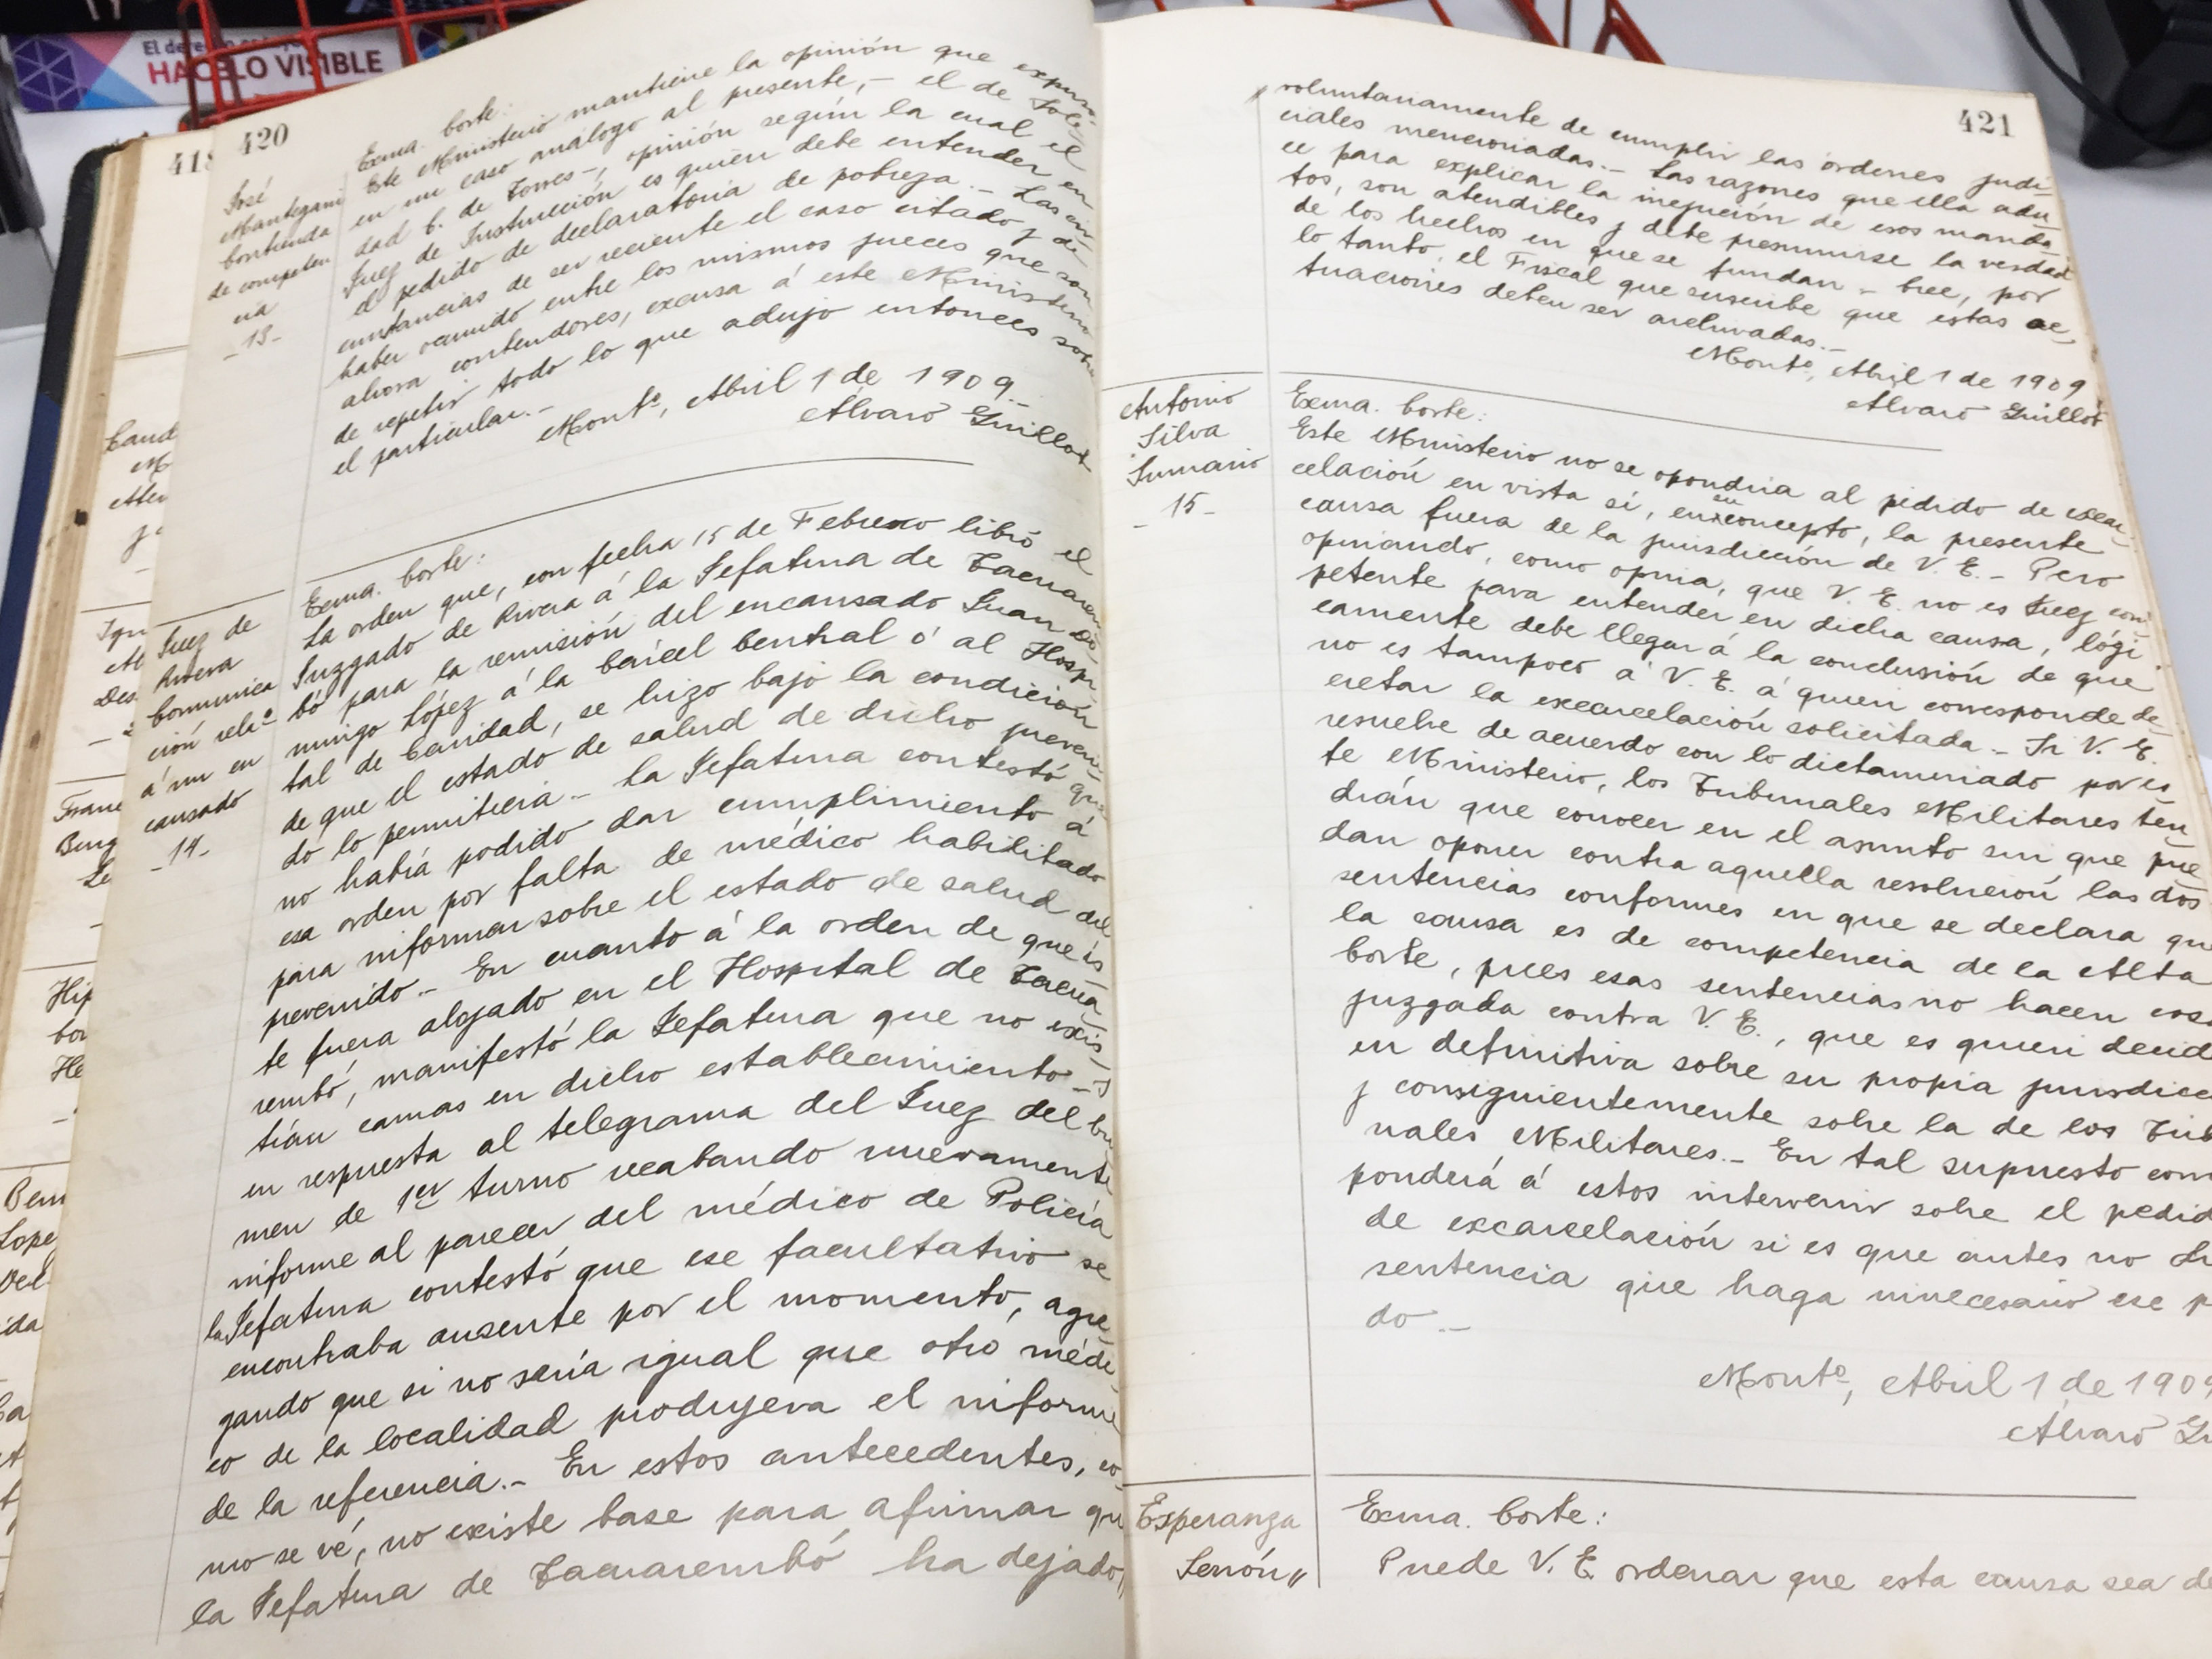 HACELO VISIBLE
418
420
José
Mantegani
Contienda
de competen
cia
-13-
Exma. Corte:
Este Ministerio mantiene la opinión que expuso
en un caso análogo al presente,- el de Sole
dad C. de Torres-, opinión según la cual el
Juez de Instrucción es quien debe entender en
el pedido de declaratoria de pobreza.- Las cir-
cunstancias de ser reciente el caso citado y de
haber ocurrido entre los mismos jueces que son
ahora contendores, excusa á este Ministerio
de repetir todo lo que adujo entonces sobre
el particular.-
Montº, Abril 1 de 1909.-
Alvaro Guillot
Juez de
Rivera
Comunica
ción relaª
á un en
causado
-14-
Exma. Corte:
La orden que, con fecha 15 de Febrero libró el
Juzgado de Rivera á la Jefatura de Tacuarem
bó para la remisión del encausado Juan Do-
mingo López á la Cárcel Central ó al Hospi
tal de Caridad, se hizo bajo la condición
de que el estado de salud de dicho preveni-
do lo permitiera.- La Jefatura contestó que
no había podido dar cumplimiento á
esa orden por falta de médico habilitado
para informar sobre el estado de salud del
prevenido.- En cuanto á la orden de que és
te fuera alojado en el Hospital de Tacua
rembó, manifestó la Jefatura que no exis-
tían camas en dicho establecimiento-y
en respuesta al telegrama del Juez del Cri
men de 1er turno recabando nuevamente
informe al parecer del médico de Policía
la Jefatura contestó que ese facultativo se
encontraba ausente por el momento, agre-
gando que si no sería igual que otro médi-
co de la localidad produjera el informe
de la referencia.- En estos antecedentes, co-
mo se vé, no existe base para afirmar que
la Jefatura de Tacuarembó ha dejado,,
421
voluntariamente de cumplir las órdenes judi-
ciales mencionadas.- Las razones que ella adu
ce para explicar la inejución de esos manda
tos, son atendibles y debe presumirse la verdad
de los hechos en que se fundan - Cree, por
lo tanto, el Fiscal que suscribe que estas ac-
tuaciones deben ser archivadas.-
Montº, Abril 1 de 1909
Alvaro Guillot
Antonio
Silva
Sumario
-15-
Exma. Corte:
Este Ministerio no se opondría al pedido de excar-
celación en vista si, en su concepto, la presente
causa fuera de la jurisdicción de V. E.- Pero
opinando, como opina, que V. E. no es Juez com
petente para entender en dicha causa, lógi
camente debe llegar á la conclusión de que
no es tampoco á V. E. á quien corresponde de-
cretar la excarcelación solicitada.- Si V. E.
resuelve de acuerdo con lo dictaminado por es
te Ministerio, los Tribunales Militares ten
drán que conocer en el asunto sin que pue
dan oponer contra aquella resolución las dos
sentencias conformes en que se declara que
la causa es de competencia de la Alta
Corte, pues esas sentencias no hacen cosa
juzgada contra V. E., que es quien decid
en definitiva sobre su propia jurisdicc
y consiguientemente sobre la de los Trib
nales Militares.- En tal supuesto corr
ponderá á estos intervenir sobre el pedid
de excarcelación si es que antes no
sentencia que haga innecesario ese p
do.-
Montº, Abril 1 de 1909
Alvaro Gu
Esperanza
Serrón,,
Exma. Corte:
Puede V. E. ordenar que esta causa sea de